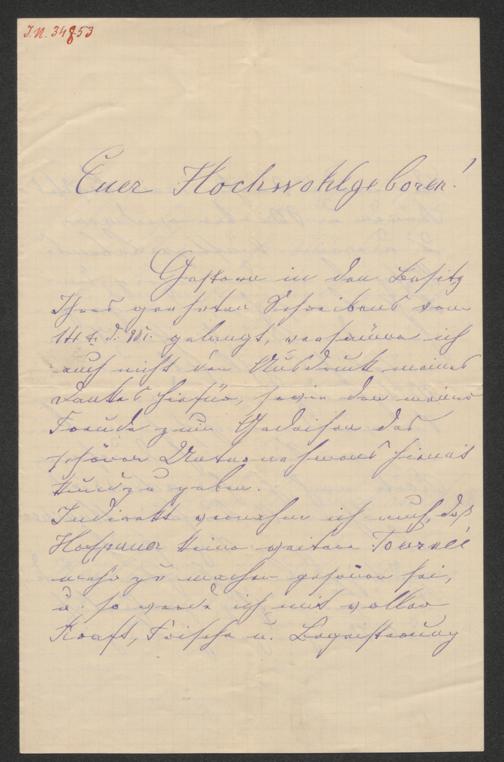 J.N. 34853
Euer Hochwohlgeboren!
Gestern in den Besitz
Ihres geehrten Schreibens vom
14t. d. Mt. gelangt, versäume ich
auch nicht den Ausdruck meines
Dankes hiefür, sowie den meiner
Freude zum Gedeihen des
schönen Unternehmens hiemit
kund zu geben.
Indirekt vernehme ich auch, daß
keine weitere Tournée
mehr zu machen gesonnen sei,
u. so werde ich mit voller
Kraft, Frische u. Begeisterung